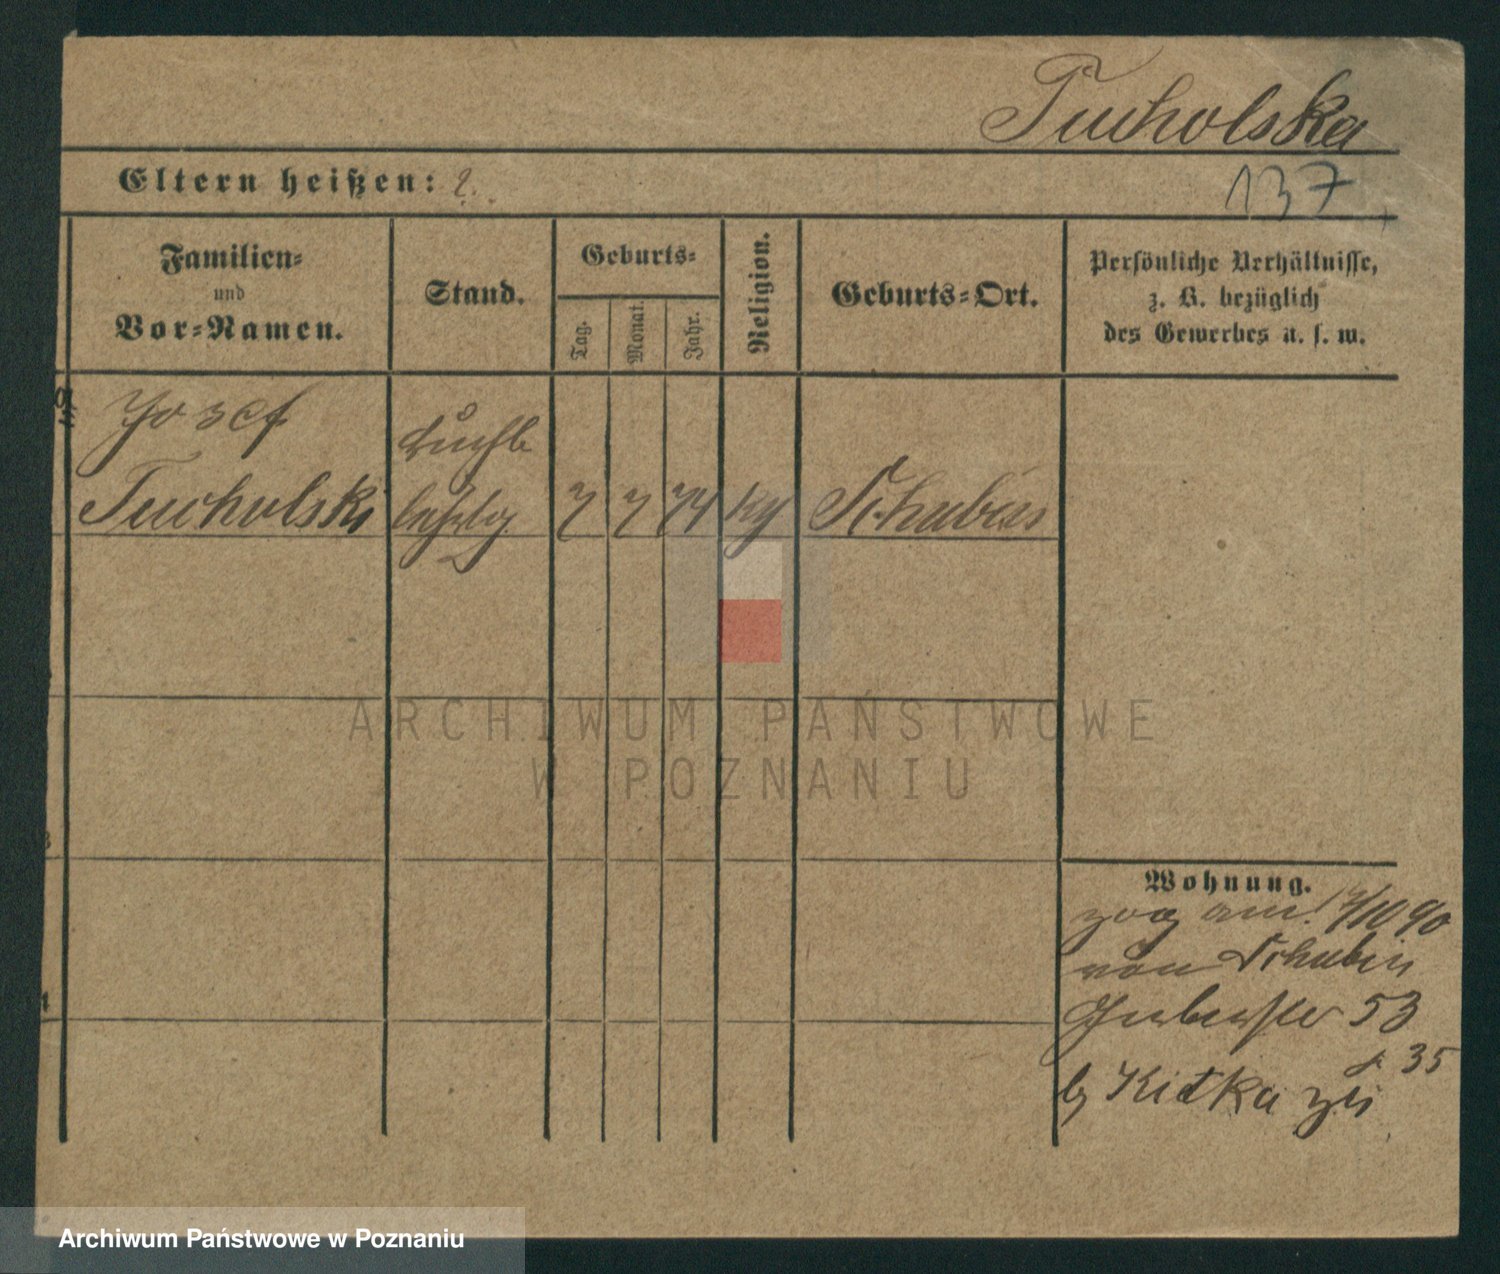 Tucholska
Eltern heißen: ?.
137
Familien=
und
Vor=Namen.
Stand.
Geburts=
Tag.
Monat.
Jahr.
Religion.
Geburts=Ort.
Persönliche Verhältnisse,
z. B. bezüglich
des Gewerbes u. s. w.
Josef
Tucholski
7 7 74
Schubin
Wohnung.
zog am /10 90
von Schubin
53
35
Kidka
ARCHIWUM PAŃSTWOWE
W POZNANIU
Archiwum Państwowe w Poznaniu